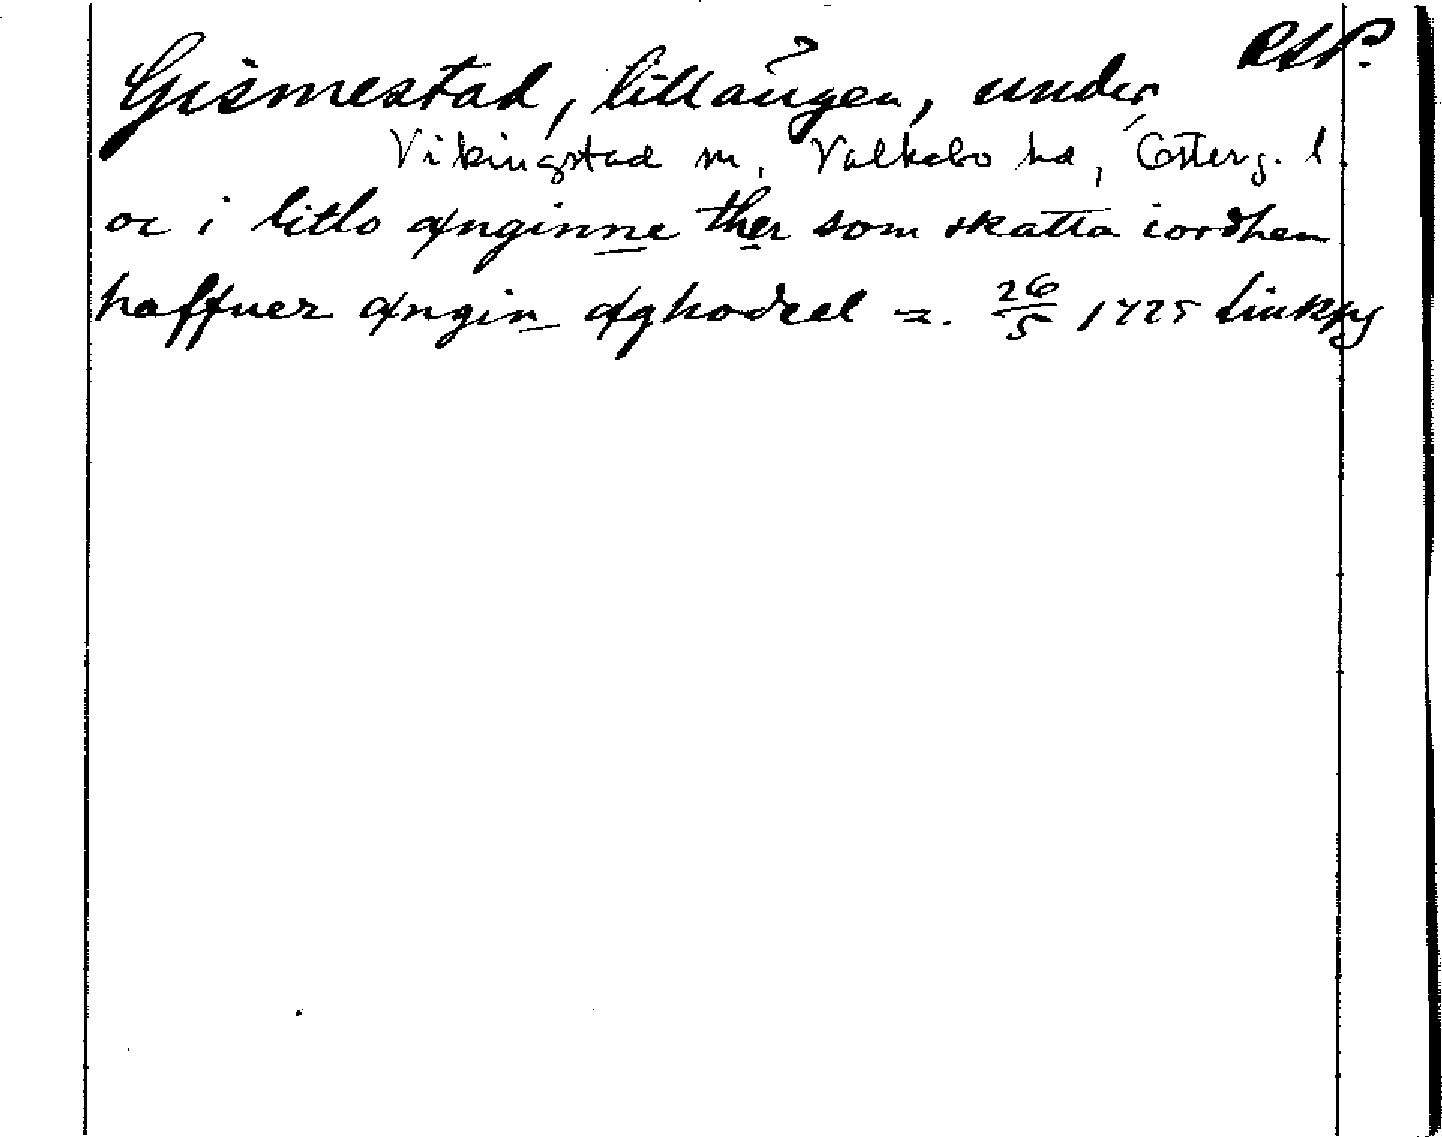 Gismestad, lillängen, under RAP.
Vikingstad sn, Valkebo hd, Österg. l.
oc i litlo ænginne ther som skatta iordhen
haffuer ængin æghodeel a. 26/5 1425 Linkpg